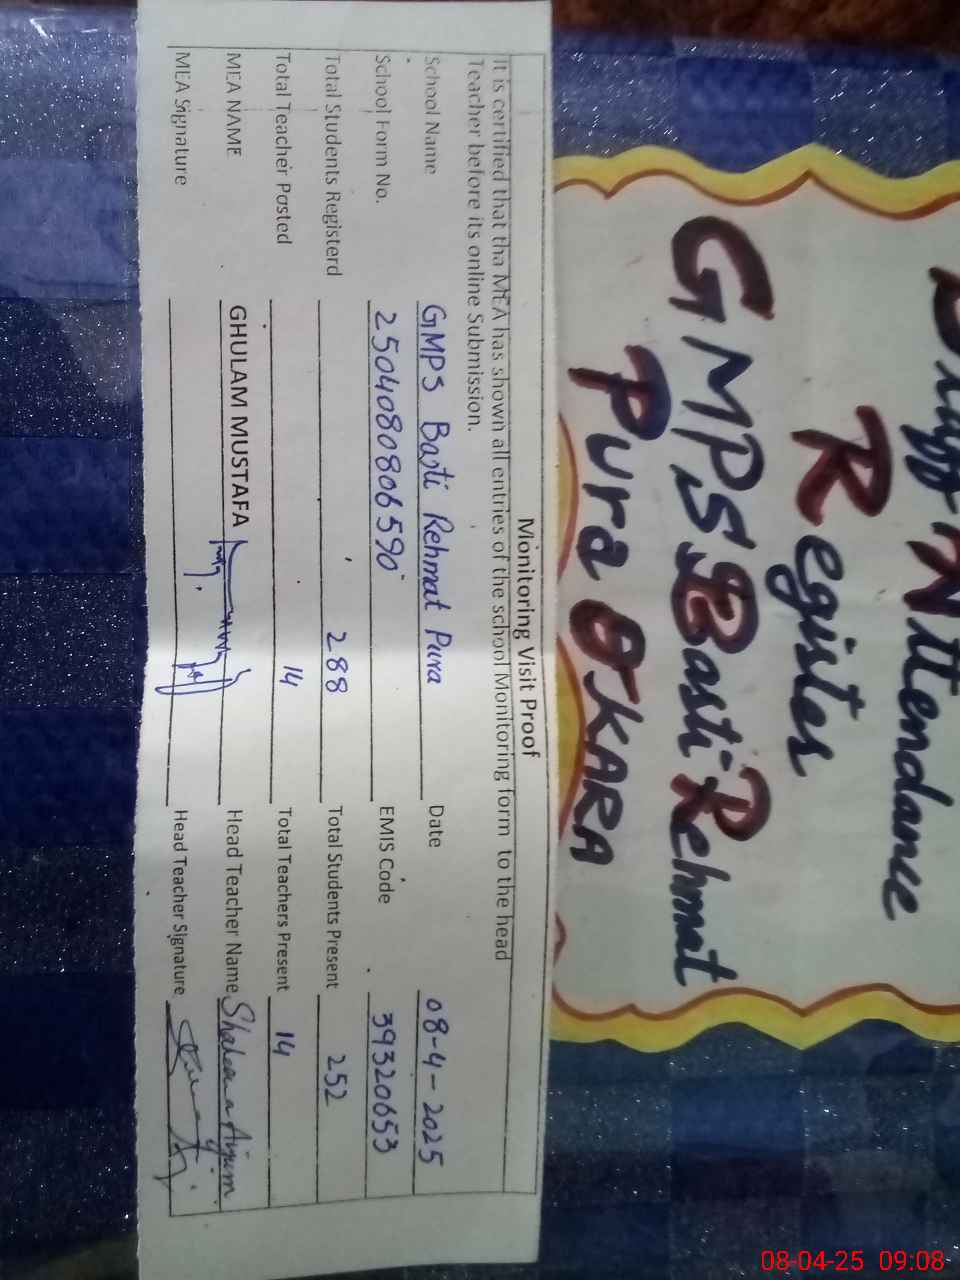 Attendance
Register
GMPS Basti Rehmat
Pura OKARA
Monitoring Visit Proof
It is certified that tha MEA has shown all entries of the school Monitoring form to the head
Teacher before its online Submission.
School Name GMPS Basti Rehmat Pura Date 08-4-2025
School Form No. 2504080806590 EMIS Code 39320653
Total Students Registerd 288 Total Students Present 252
Total Teacher Posted 14 Total Teachers Present 14
MEA NAME GHULAM MUSTAFA Head Teacher Name Shaheena Anjum
MEA Signature Head Teacher Signature
08-04-25 09:08